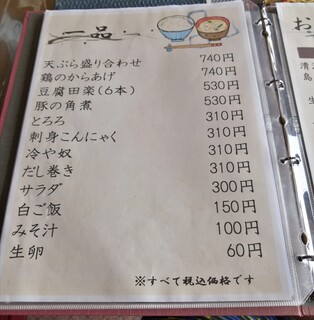 一品
天ぷら盛り合わせ 740円
鶏のからあげ 740円
豆腐田楽(6本) 530円
豚の角煮 530円
とろろ 310円
刺身こんにゃく 310円
冷や奴 310円
だし巻き 310円
サラダ 300円
白ご飯 150円
みそ汁 100円
生卵 60円
※すべて税込価格です
お
清
島
生